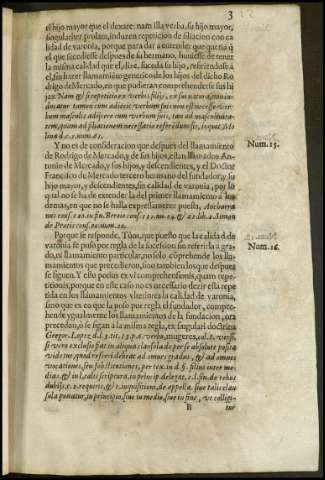 3
el hijo mayor que el dexare: nam illa verba, su hijo mayor,
singulariter prolata, inducen repeticion de filiacion con ca
lidad de varonia, porque para dar a entender que queria q̃
el que sucediesse despues de su hermano, huuiesse de tener
la misma calidad que el, dize, suceda su hijo, refiriendose a
el, sin hazer llamamiento generico de los hijos del dicho Ro
drigo de Mercado, en que pudieran comprehenderse sus hi
jas: Nam & si repetitio ex verbis filij, ex sui natura,
tamen cum adiecit verbum suis non est necesse ver
bum masculis adijcere cum verbum suis, tan ad masculinita-
tem, quam ad filiationem necessario referendum sit, inquit Mo
lina d. c. 5. num. 45.
Y no es de consideracion que despues del llamamiento
de Rodrigo de Mercado, y de sus hijos, estan llamados An-
tonio de Mercado, y sus hijos, y descendientes, y el Doctor
Francisco de Mercado tercero hermano del fundador, y su
hijo mayor, y descendientes, sin calidad de varonia, por lo
qual no se ha de extender la del primer llamamiento a los
demas, en que no se halla expressamente puesta,
Num. 15.
Porque se responde. Tũm, que puesto que la calidad de
varonia se puso por regla de la sucession sin referirla a gra-
do, ni llamamiento particular, no solo cõprehende los lla-
mamientos que precedieron, sino tambien los que despues
se siguen. Y esto potius ex vi comprehensionis, quam repe-
titionis, porque en este caso no es necessario dezir esta repe
tida en los llamamientos vlteriores la calidad de varonia,
sino que ex eo que la puso por regla el fundador, compre-
hende igualmente los llamamientos de la fundacion, ora
precedan, o se sigan a la misma regla, ex singulari doctrina
Gregor. Lopez d. l. 3. tit. 13. p. 2. verbo, mugeres, col. 1. versic.
si vero exclusio fiat in aliqua clausula de per se absolute posita
videtur, quod referri debeat ad omnes gradus, & ad omnes
vocationes, seu substitutiones, per tex. in d. §. filius inter me-
dias, & in l. tales scriptura, in princip. de legat. 1. l. fin. de rebus
dubijs, c. 2. requiris, & t. inquisitioni, de appellat. siue talis clau
sula ponatur, in principio, siue in medio, siue in fine, vt colligi-
Num. 16.
B tur